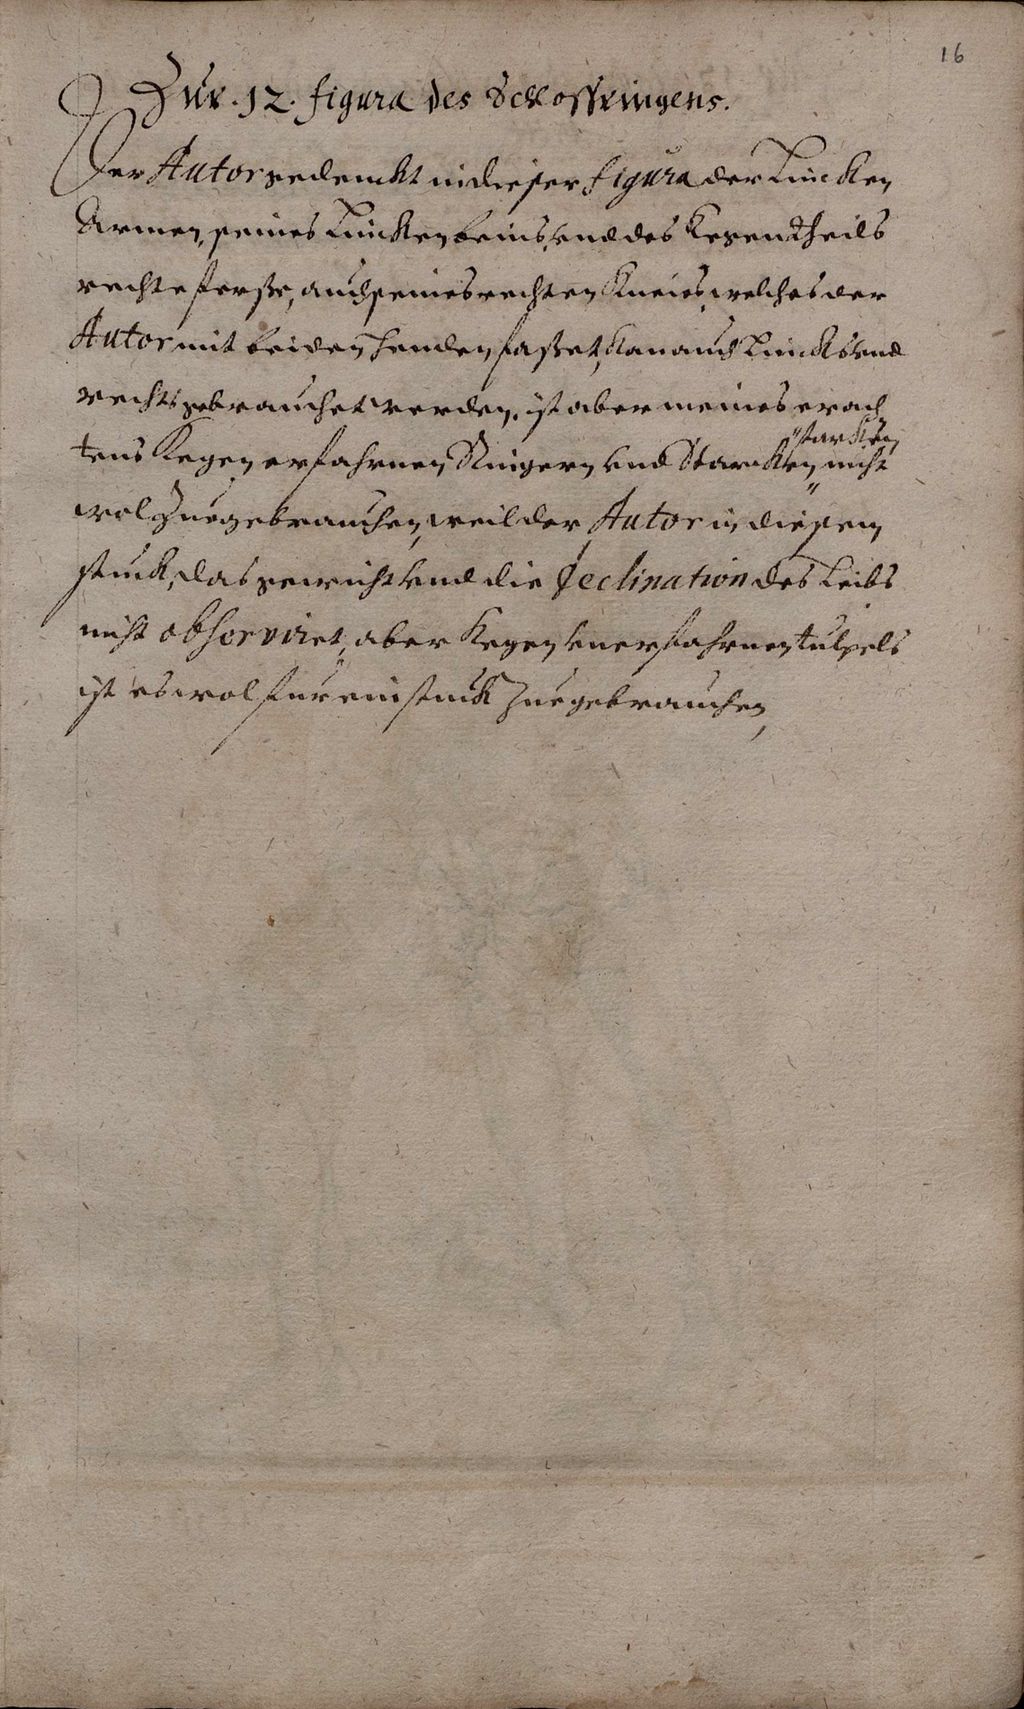 16
Zur . 12 . figura des Schlossringens.
Der Autor gedenckt in dieser figura der Lincken
Armen, seines Lincken beins, vnd des Kegentheils
rechte ferse, auch seines rechten Knies, welches der
Autor mit beiden henden fasset, Kan auch Lincks vnd
rechts gebrauchet werden, ist aber meines erach
tens Kegen erfahrnen Ringern vnd Starcken nicht
starcken
wol zu gebrauchen, weil der Autor in diesem
stuck, das gewicht vnd die declination des Leibs
nicht observiret, aber Kegen vnerfahrnen tulpels
ist es wol fur ein stuck zu gebrauchen,